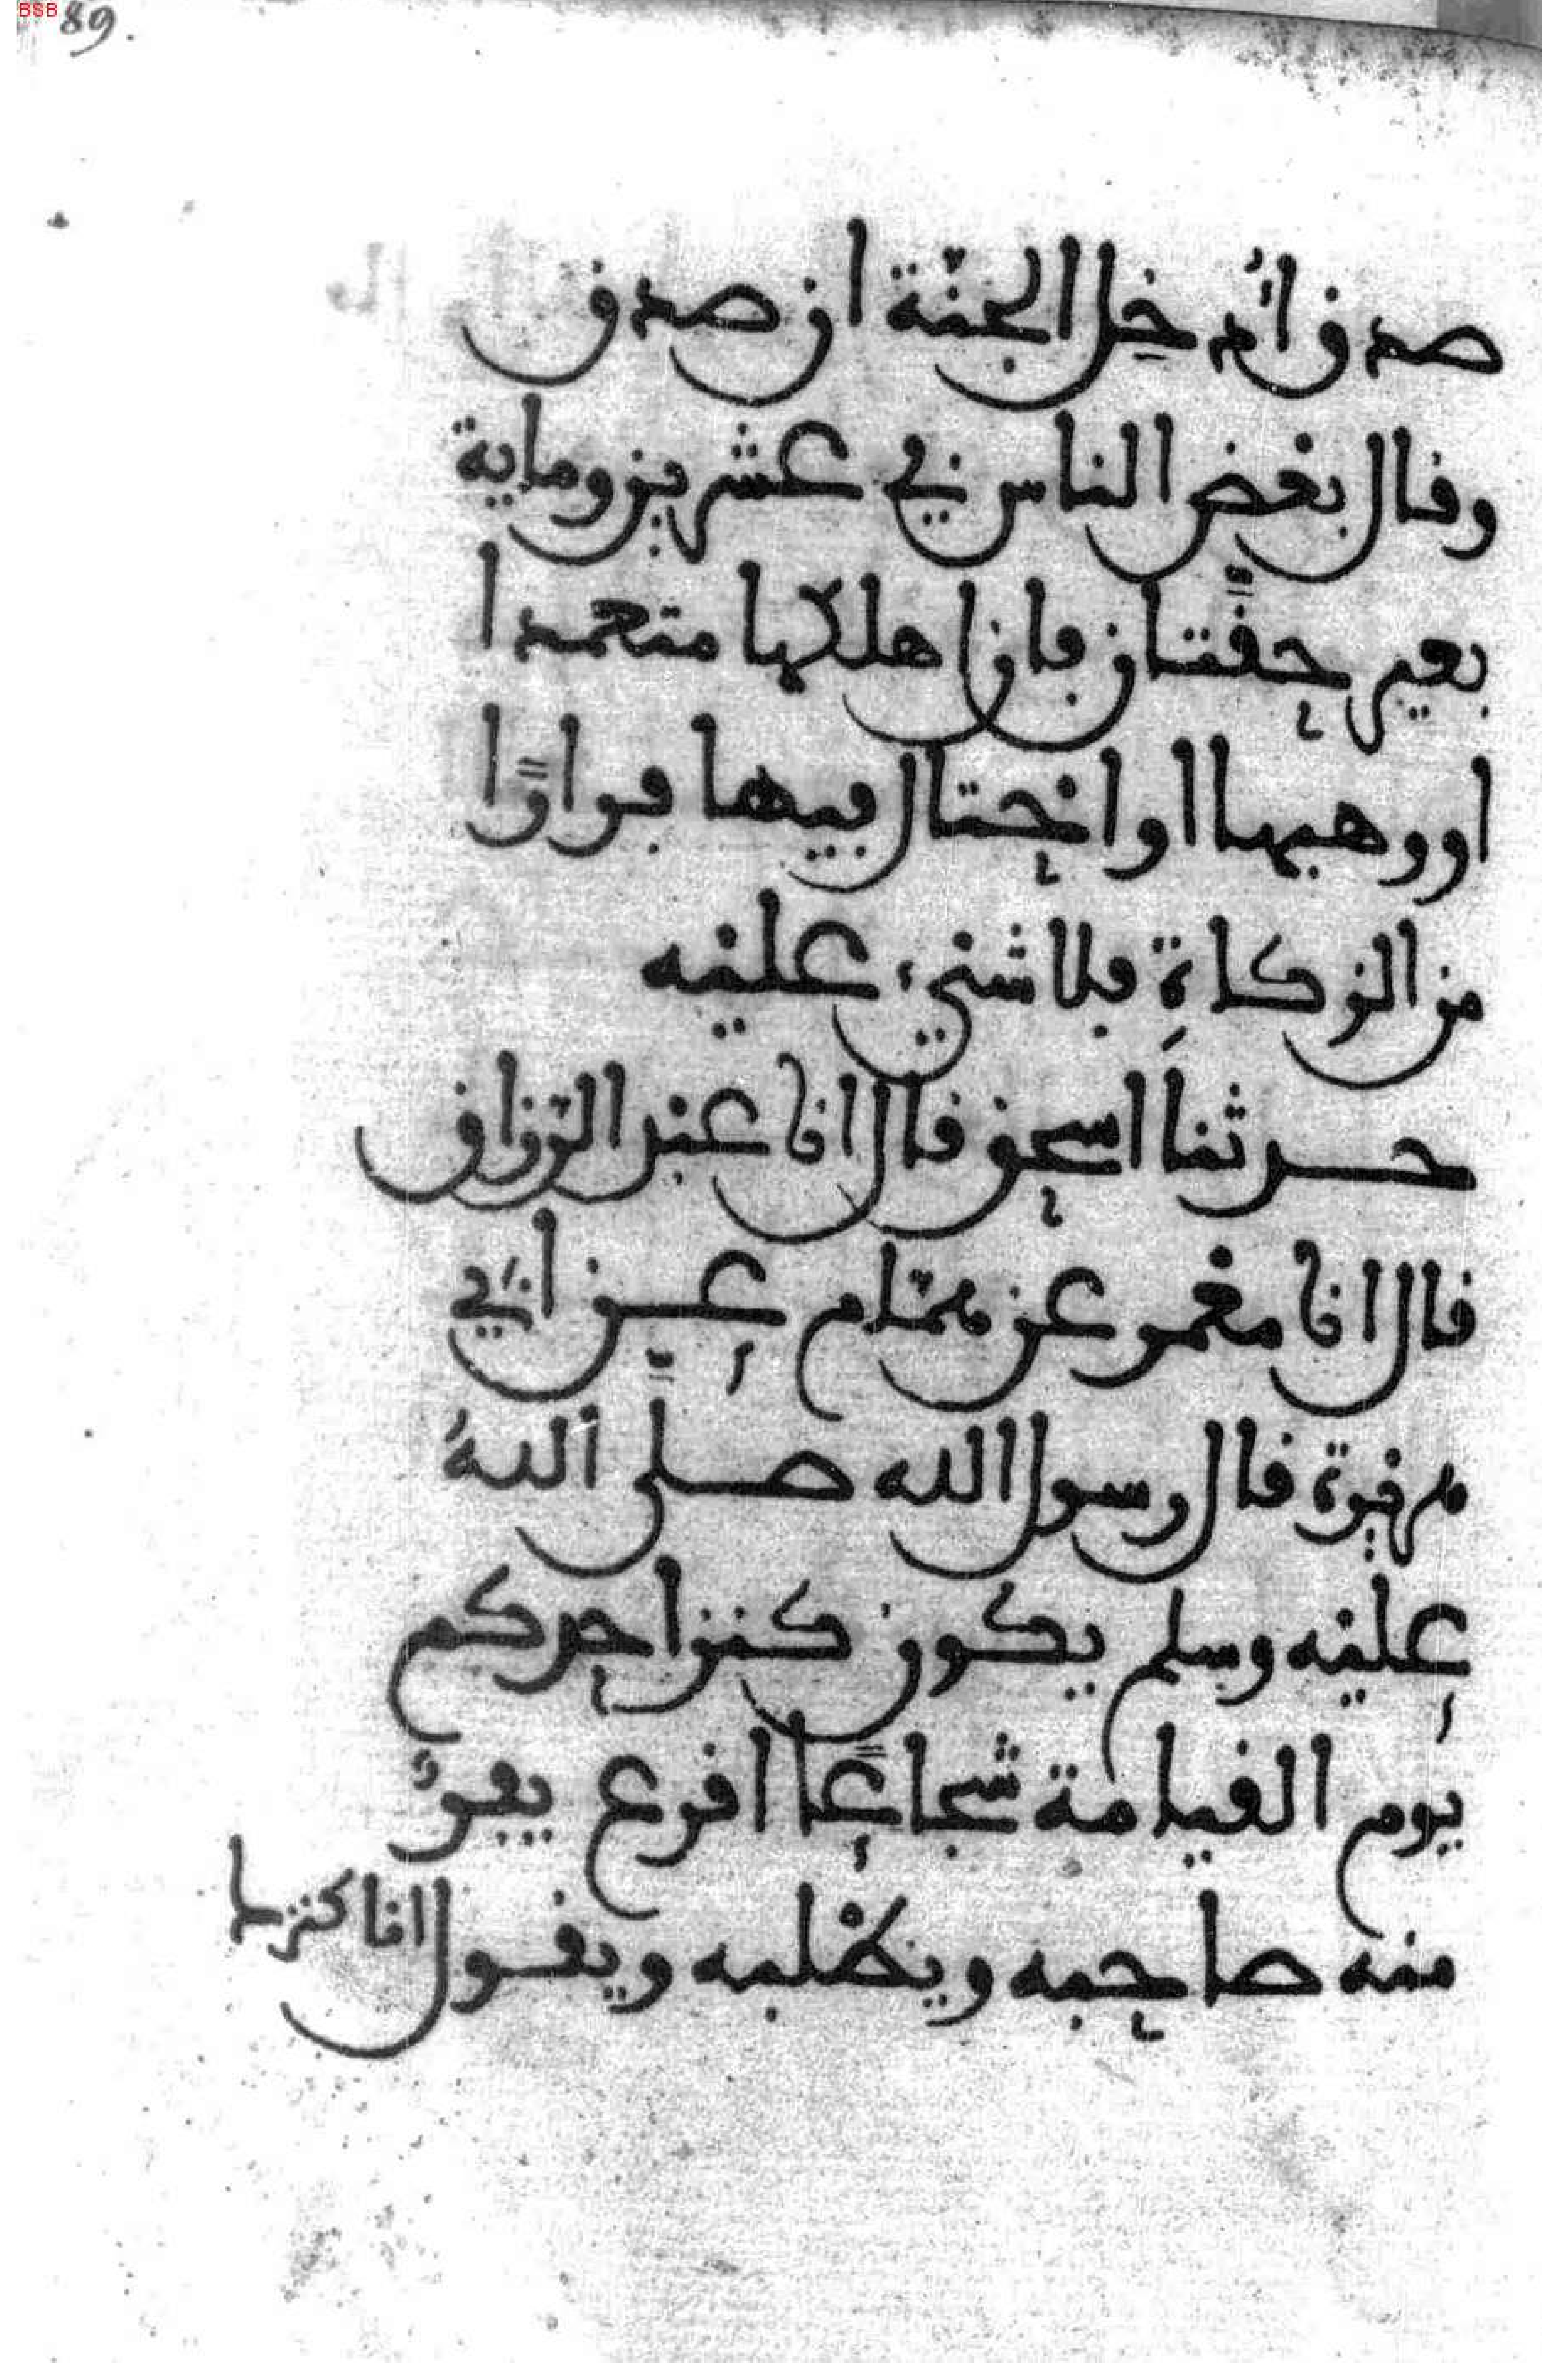 BSB 89.
صدق أُدخِل الجنّة ان صدق
وقال بعْض الناس في عشرين وماية
بعير حقّتان فان اهلكها متعمدا
او وهبها او احْتال فيها فرارًا
من الزكاةِ فلا شيْء عليْه
حدثنَا اسحٰق قال انا عبْد الرّزاق
قال انا معْمر عن همّام عن أبي
هريْرة قال رسول الله صلّى اللهُ
عليْه وسلم يكون كنز احدكم
يوم القيامة شجاعًا اقرع يفرُّ
منه صاحبه ويطْلبه ويقول انا كنزك